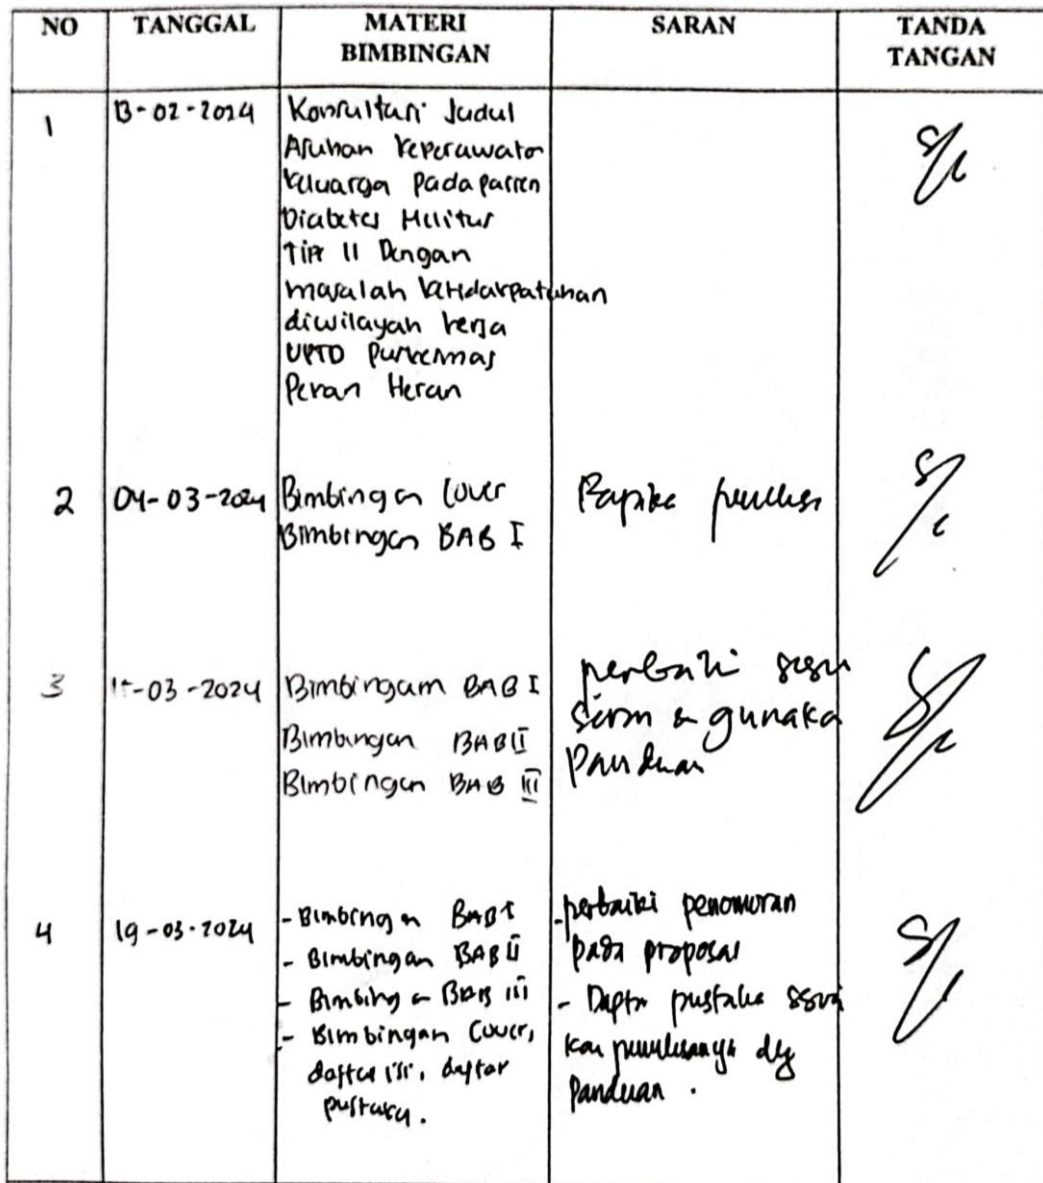 NO TANGGAL MATERI BIMBINGAN SARAN TANDA TANGAN
1 13-02-2024 Konsultasi Judul
Asuhan Keperawatan
Keluarga Pada pasien
Diabetes Melitus
Tipe II Dengan
masalah Ketidakpatuhan
diwilayah kerja
UPTD Puskesmas
Peran Heran
2 04-03-2024 Bimbingan Cover
Bimbingan BAB I
3 -03-2024 Bimbingan BAB I
Bimbingan BAB II
Bimbingan BAB III
perbaiki
saran & gunaka
Panduan
4 19-03-2024 - Bimbingan BAB I
- Bimbingan BAB II
- Bimbingan BAB III
- Bimbingan Cover,
daftar isi, daftar
pustaka.
- perbaiki penomoran
pada proposal
- Daftar pustaka sesuai
kan penulisannya dg
Panduan.